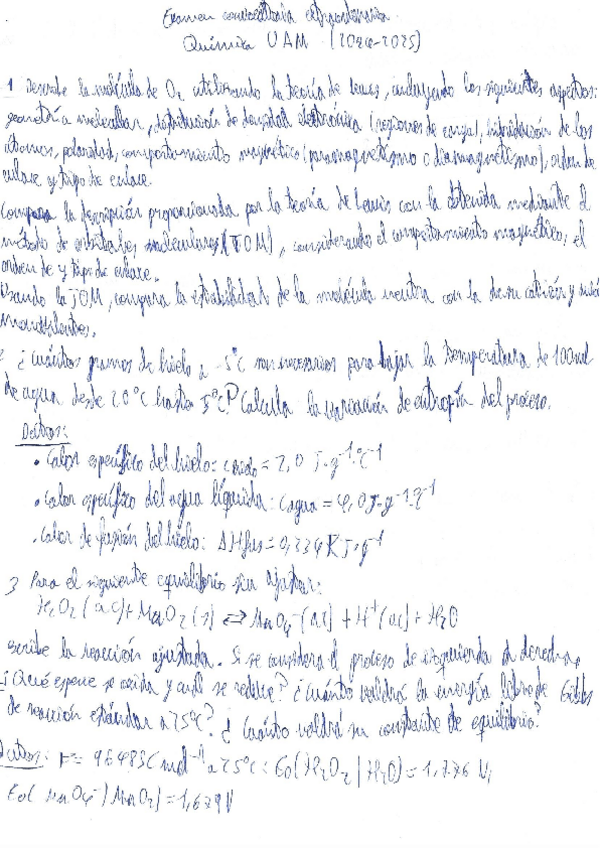 Examen convocatoria extraordinaria
Química UAM (2024-2025)
1 Describe la molécula de O2 utilizando la teoría de Lewis, incluyendo los siguientes aspectos:
geometría molecular, distribución de densidad electrónica (regiones de carga), hibridación de los
átomos, polaridad, comportamiento magnético (paramagnetismo o diamagnetismo), orden de
enlace y tipo de enlace.
Compara la descripción proporcionada por la teoría de Lewis con la obtenida mediante el
método de orbitales moleculares (TOM), considerando el comportamiento magnético, el
orden de y tipo de enlace.
Usando la TOM, compara la estabilidad de la molécula neutra con la de su catión y anión
monovalentes.
2 ¿Cuántos gramos de hielo a -5ºC son necesarios para bajar la temperatura de 100ml
de agua desde 20ºC hasta 5ºC? Calcula la variación de entropía del proceso.
Datos:
• Calor específico del hielo: chielo = 2,0 J·g⁻¹·ºC⁻¹
• Calor específico del agua líquida: cagua = 4,0 J·g⁻¹·ºC⁻¹
• Calor de fusión del hielo: ΔHfus = 0,334 KJ·g⁻¹
3 Para el siguiente equilibrio sin ajustar:
H2O2 (ac) + MnO2 (s) ⇌ MnO4⁻ (ac) + H⁺ (ac) + H2O
escribe la reacción ajustada. Si se considera el proceso de izquierda a derecha,
¿Qué especie se oxida y cuál se reduce? ¿Cuánto valdrá la energía libre de Gibbs
de reacción estándar a 25ºC? ¿Cuánto valdrá su constante de equilibrio?
Datos: F = 96485 C mol⁻¹ a 25ºC: Eo(H2O2|H2O) = 1,776 V,
Eo(MnO4⁻|MnO2) = 1,679V